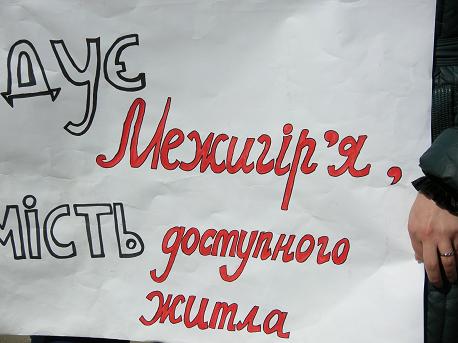 ДУЄ
Межигір'я,
МІСТЬ доступного
житла